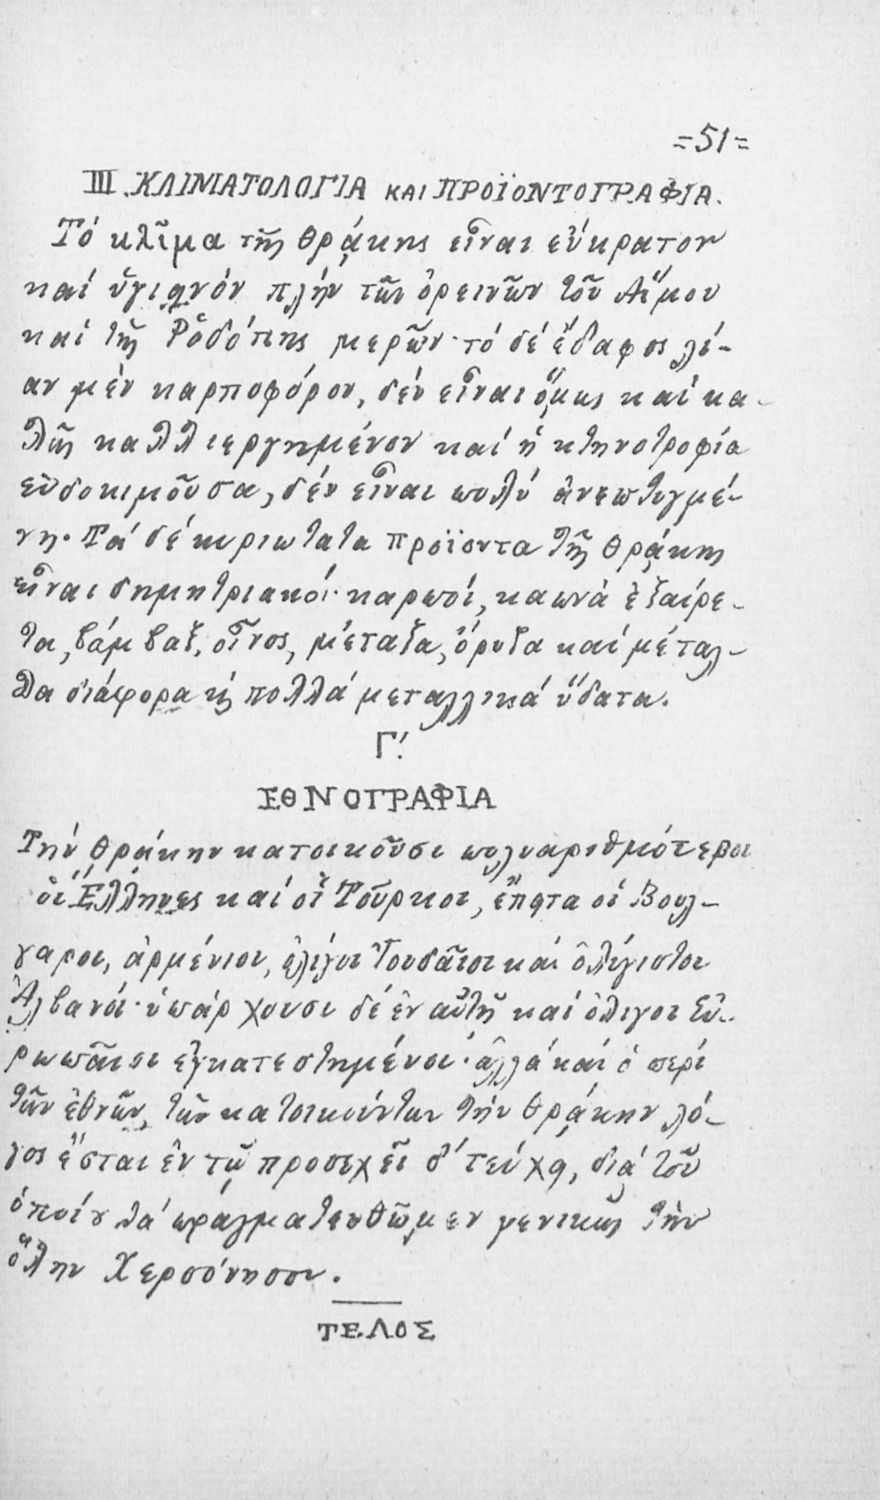 =51=
III. ΚΛΙΜΑΤΟΛΟΓΙΑ ΚΑΙ ΠΡΟΪΟΝΤΟΓΡΑΦΙΑ.
Τό κλῖμα τῆς Θράκης εἶναι εὔκρατον
καί ὑγιεινόν πλήν τῶν ὀρεινῶν τοῦ Αἵμου
καί τῆς Ῥοδόπης μερῶν· τό δέ ἔδαφος λί-
αν μέν καρποφόρον, δέν εἶναι ὅμως καί κα-
λῶς καλλιεργημένον καί ἡ κτηνοτροφία
εὐδοκιμοῦσα, δέν εἶναι πολύ ἀνεπτυγμέ-
νη. Τά δέ κυριώτατα προϊόντα τῆς Θράκης
εἶναι δημητριακοί καρποί, καπνά ἐξαίρε-
τα, βάμβαξ, οἶνος, μέταξα, ὄρυζα καί μέταλ-
λα διάφορα κ̣ πολλά μεταλλικά ὕδατα.
Γ΄.
ΕΘΝΟΓΡΑΦΙΑ
Τήν Θράκην κατοικοῦσι πολυαριθμότεροι
οἱ Ἕλληνες καί οἱ Τοῦρκοι, ἔπειτα οἱ Βουλ-
γαροι, ἀρμένιοι, ὀλίγοι Ἰουδαῖοι καί ὀλίγιστοι
Ἀλβανοί· ὑπάρχουσι δέ ἐν αὐτῇ καί ὀλίγοι Εὐ-
ρωπαῖοι ἐγκατεστημένοι· ἀλλά καί ὁ περί
τῶν ἐθνῶν, τῶν κατοικούντων τήν Θράκην λό-
γος ἔσται ἐν τῷ προσεχεῖ δ΄ τεύχει, διά τοῦ
ὁποίου θά πραγματευθῶμεν γενικῶς τήν
ὅλην Χερσόνησον.
ΤΕΛΟΣ